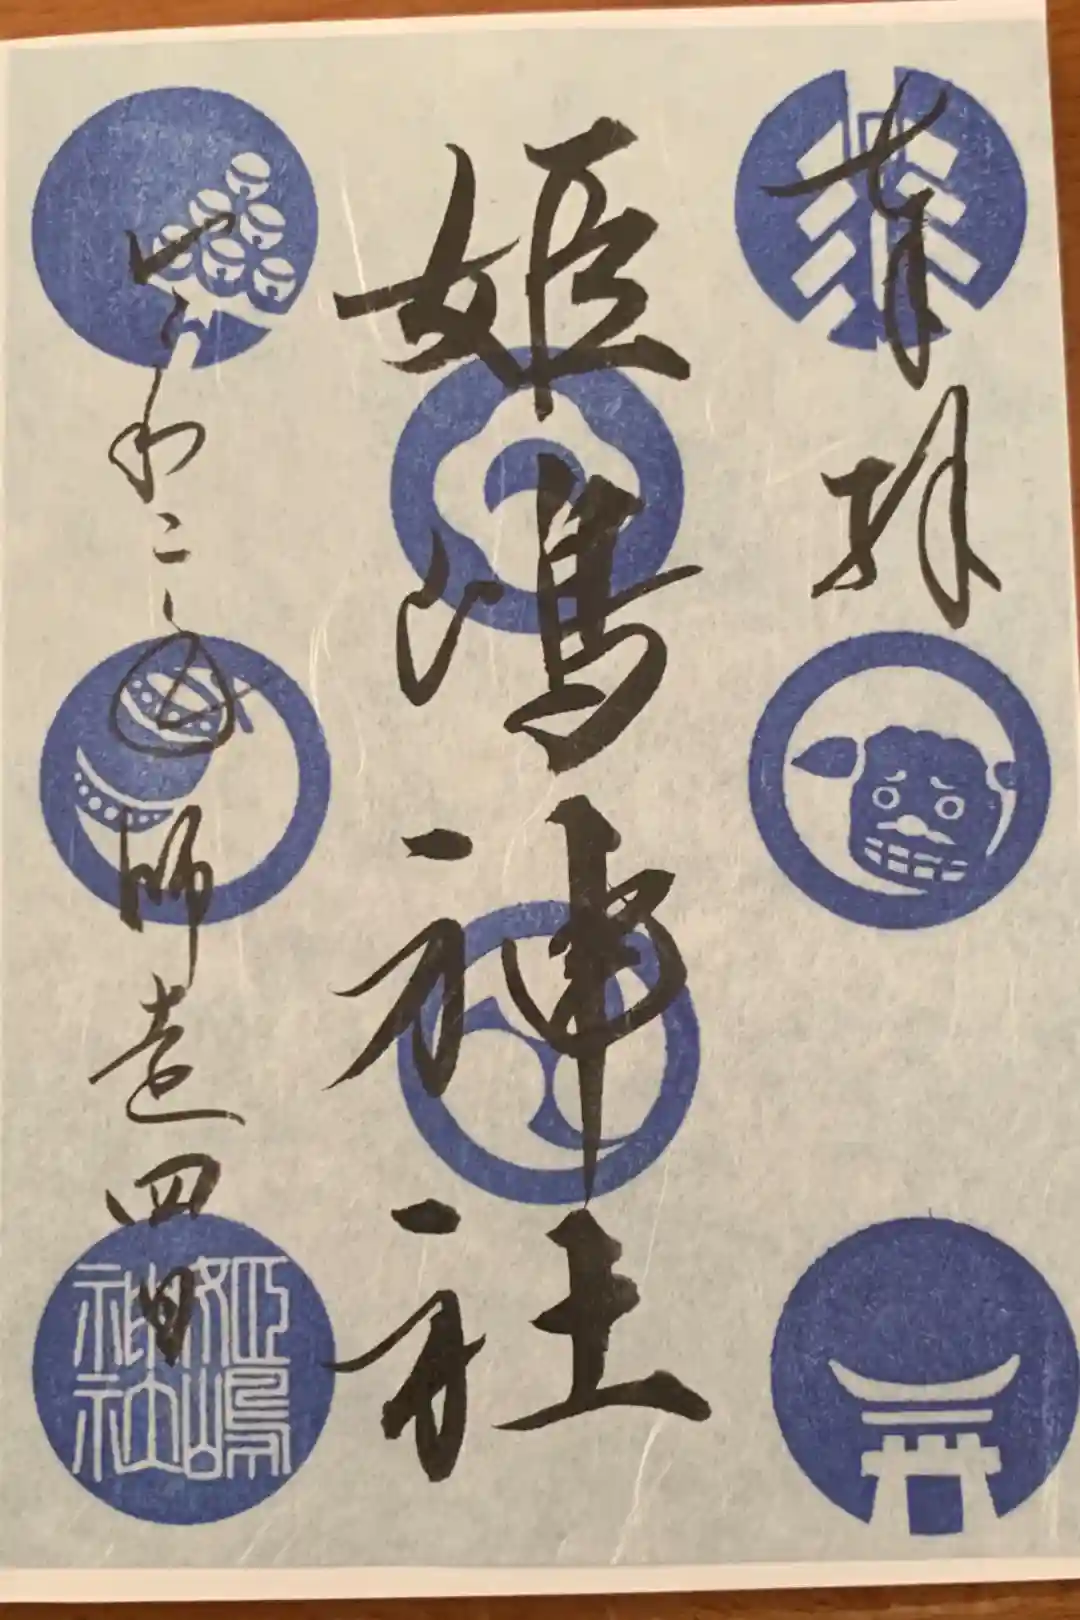 奉拝
姫嶋神社
令和二 師走四日
姫嶋
神社